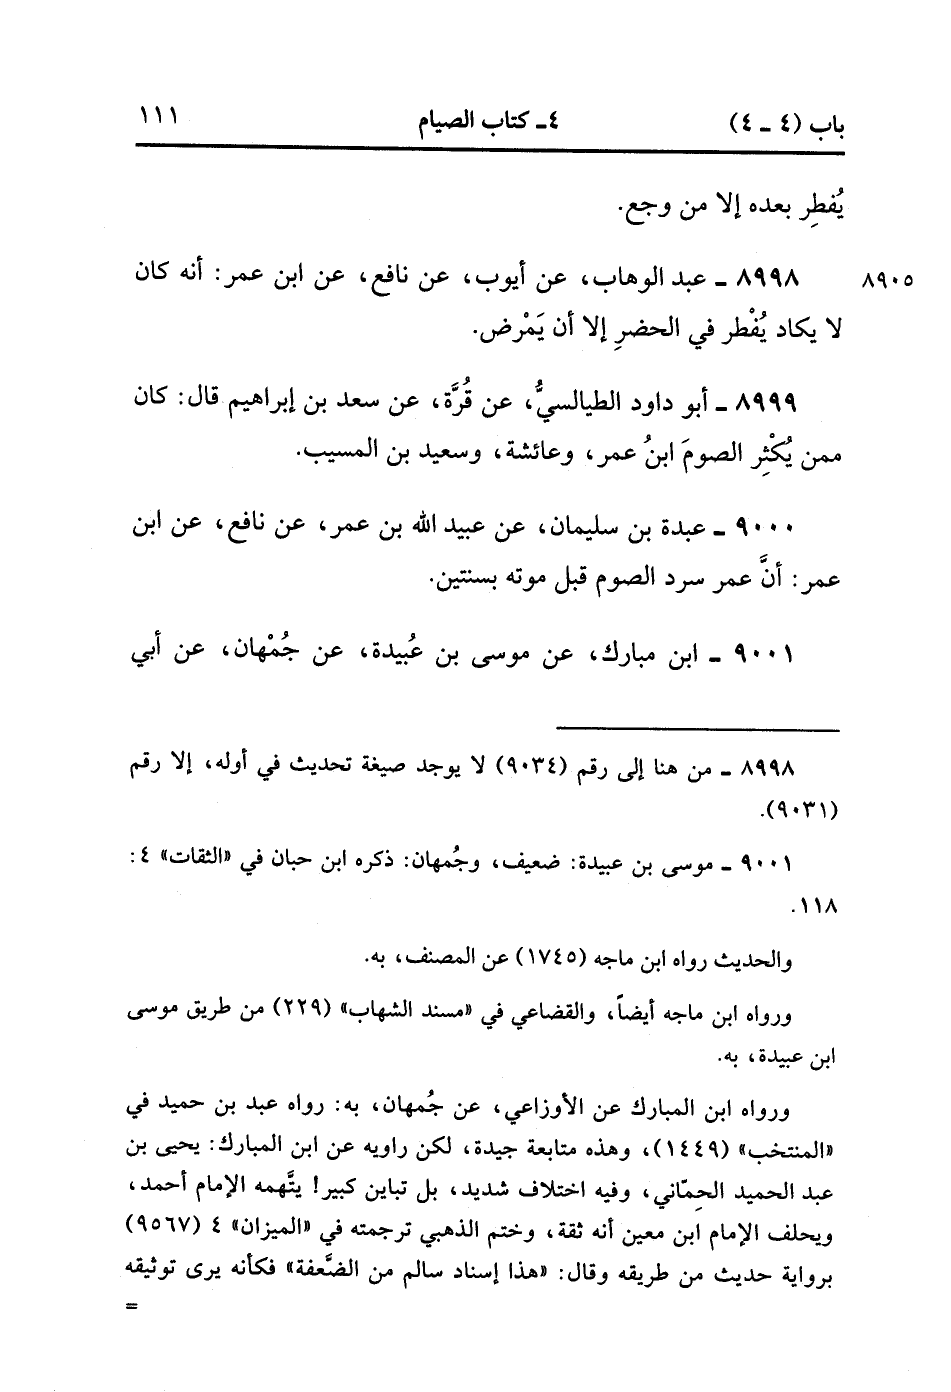 باب (٤ ـ ٤) ٤ـ كتاب الصيام ١١١
يُفطِر بعده إلا من وجع.
٨٩٠٥ ٨٩٩٨ ـ عبد الوهاب، عن أيوب، عن نافع، عن ابن عمر: أنه كان
لا يكاد يُفْطر في الحضرِ إلا أن يَمْرض.
٨٩٩٩ ـ أبو داود الطيالسيُّ، عن قُرَّة، عن سعد بن إبراهيم قال: كان
ممن يُكْثِر الصومَ ابنُ عمر، وعائشة، وسعيد بن المسيب.
٩٠٠٠ ـ عبدة بن سليمان، عن عبيد الله بن عمر، عن نافع، عن ابن
عمر: أنَّ عمر سرد الصوم قبل موته بسنتين.
٩٠٠١ ـ ابن مبارك، عن موسى بن عُبيدة، عن جُمْهان، عن أبي
٨٩٩٨ ـ من هنا إلى رقم (٩٠٣٤) لا يوجد صيغة تحديث في أوله، إلا رقم
(٩٠٣١).
٩٠٠١ ـ موسى بن عبيدة: ضعيف، وجُمهان: ذكره ابن حبان في «الثقات» ٤:
١١٨.
والحديث رواه ابن ماجه (١٧٤٥) عن المصنف، به.
ورواه ابن ماجه أيضاً، والقضاعي في «مسند الشهاب» (٢٢٩) من طريق موسى
ابن عبيدة، به.
ورواه ابن المبارك عن الأوزاعي، عن جُمهان، به: رواه عبد بن حميد في
«المنتخب» (١٤٤٩)، وهذه متابعة جيدة، لكن راويه عن ابن المبارك: يحيى بن
عبد الحميد الحِمّاني، وفيه اختلاف شديد، بل تباين كبير! يتَّهمه الإمام أحمد،
ويحلف الإمام ابن معين أنه ثقة، وختم الذهبي ترجمته في «الميزان» ٤ (٩٥٦٧)
برواية حديث من طريقه وقال: «هذا إسناد سالم من الضَّعفة» فكأنه يرى توثيقه
=